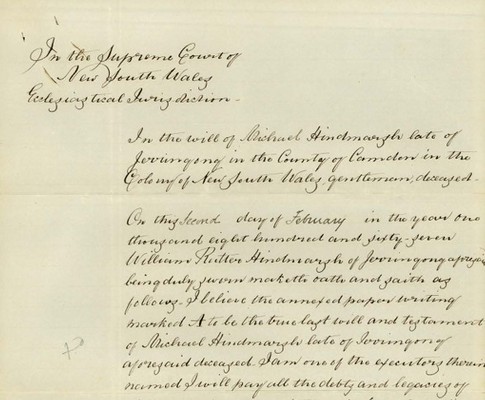 In the Supreme Court of
New South Wales
Ecclesiastical Jurisdiction -
In the will of Michael Hindmarsh late of
Jerringong in the County of Camden in the
Colony of New South Wales, gentleman, deceased -
On this Second day of February in the year one
thousand eight hundred and sixty-seven
William Rutter Hindmarsh of Jerringong aforesaid
being duly sworn maketh oath and saith as
follows - I believe the annexed paper writing
marked A to be the true last will and testament
of Michael Hindmarsh late of Jerringong
aforesaid deceased. I am one of the executors therein
named I will pay all the debts and legacies of